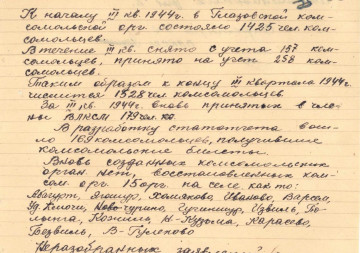 К началу III кв. 1944 г. в Глазовской ком-
сомольской орг. состояло 1425 чел. ком-
сомольцев.
В течение III кв. снято с учета 157 ком-
сомольцев, принято на учет 258 ком-
сомольцев.
Таким образом к концу III квартала 1944 г.
числится 1528 чел комсомольцев
За III кв. 1944 г. вновь принятых в чле-
ны ВЛКСМ 179 чел.
В разработку статотчета вош-
ло 169 комсомольцев, получивших
комсомольские билеты.
Вновь созданных комсомольских
орган. нет, восстановленных ком-
сом. орг. 15 орг. на селе как то:
Адам, Иваново,
Уд. Ключи, Гулеково
Кожиль, Н-Кузьма, Карасево,
В-Гулеково
Неразобранных заявлений